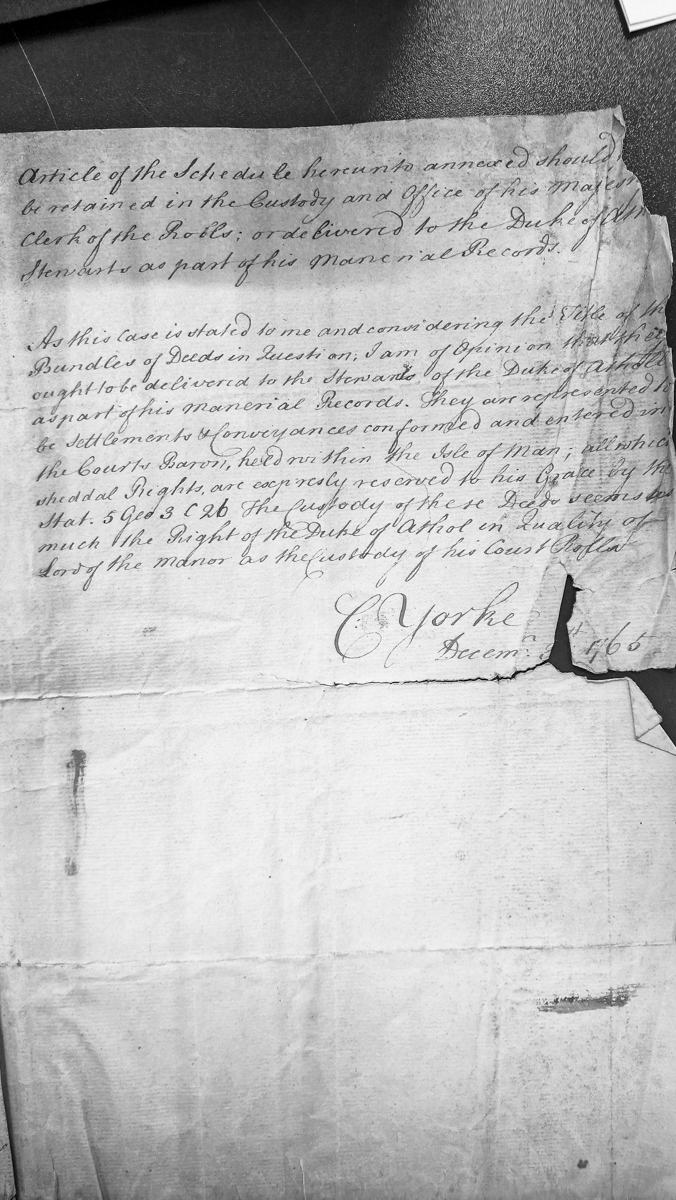 Article of the Schedule hereunto annexed should
be retained in the Custody and Office of his Majes
Clerk of the Rolls; or delivered to the Duke of Ath
Stewarts as part of his Manerial Records.
As this Case is stated to me and considering the Title of th
Bundles of Deeds in Question; I am of Opinion that they
ought to be delivered to the Stewards of the Duke of Atholl
as part of his Manerial Records. They are represented to
be Settlements & Conveyances conformed and entered in
the Courts Baron, held within the Isle of Man; all which
sheddal Rights, are expresly reserved to his Grace by the
Stat. 5 Geo 3 C 26 The Custody of these Deeds seems as
much the Right of the Duke of Athol in Quality of
Lord of the Manor as the Custody of his Court Rolls
C Yorke
Decem. 1765